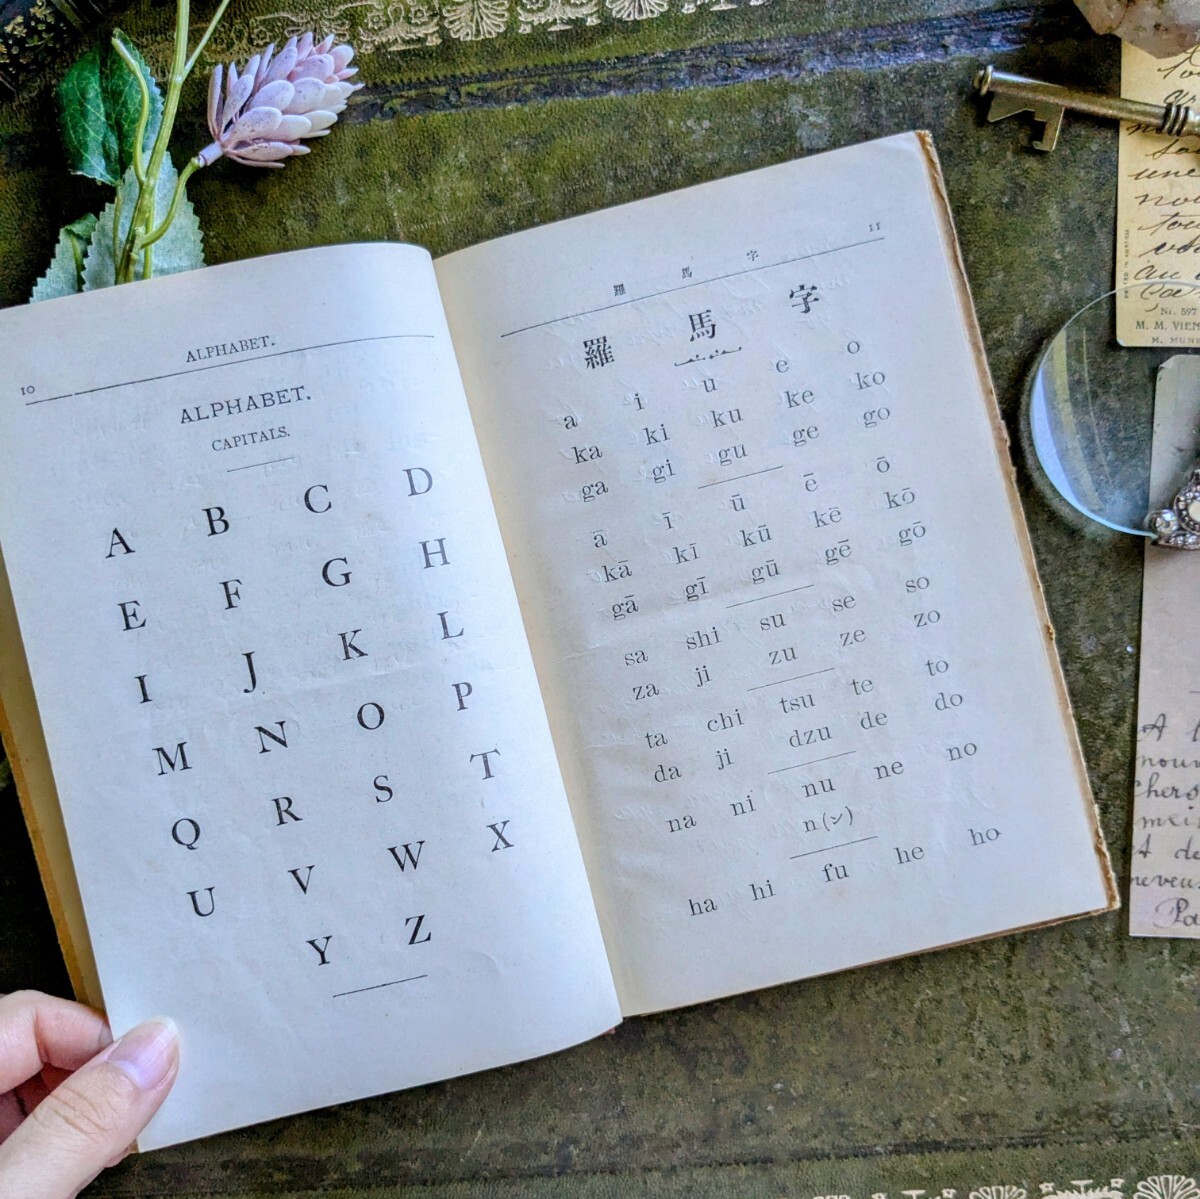 ALPHABET.
10
ALPHABET.
CAPITALS.
A B C D
E F G H
I J K L
M N O P
Q R S T
U V W X
Y Z
11
羅馬字
羅馬字
a i u e o
ka ki ku ke ko
ga gi gu ge go
ā ī ū ē ō
kā kī kū kē kō
gā gī gū gē gō
sa shi su se so
za ji zu ze zo
ta chi tsu te to
da ji dzu de do
na ni nu ne no
n (ン)
ha hi fu he ho
une
Nr. 597
M. M. VIEN
M. MUN